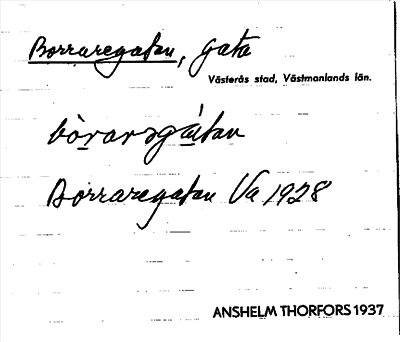 Borraregatan, gata
Västerås stad, Västmanlands län.
bòrarəgátan
Borraregatan Va 1928
ANSHELM THORFORS 1937